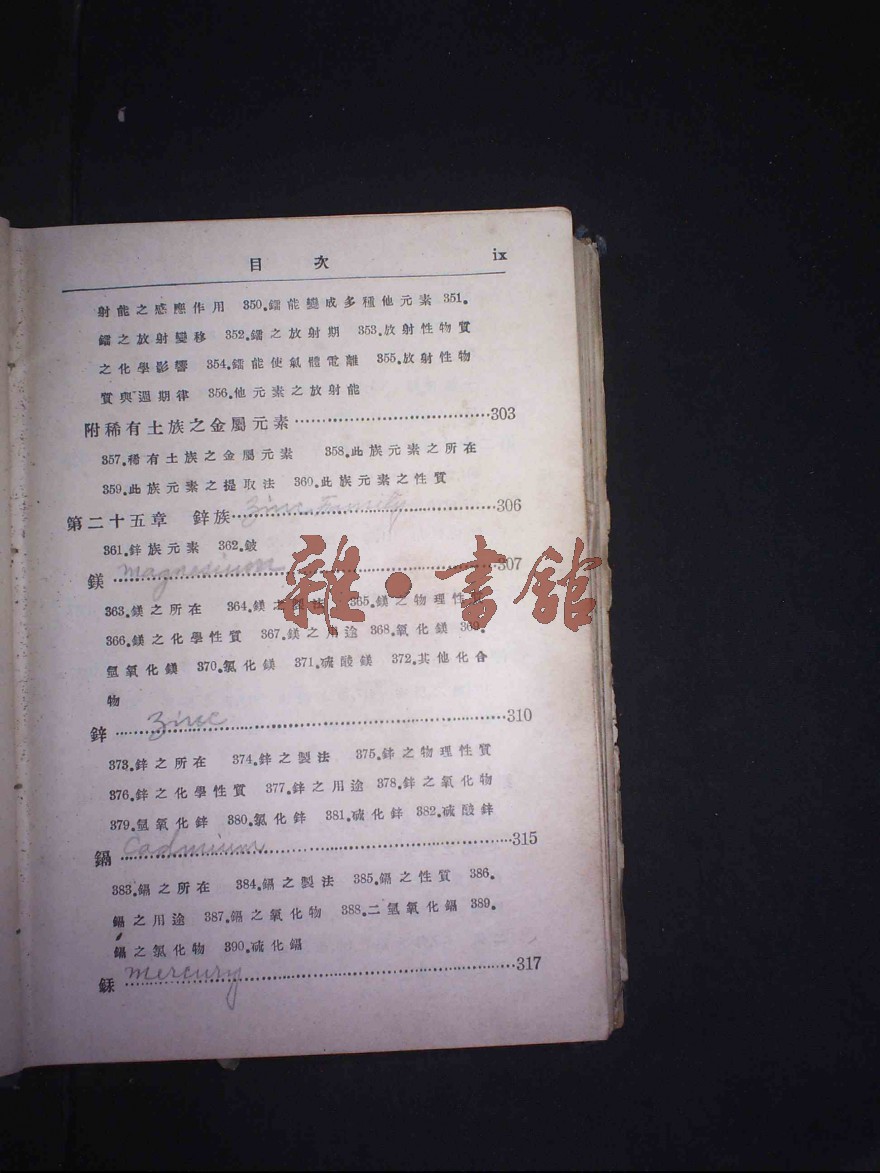 目 次 ix
射能之感應作用 350.鐳能變成多種他元素 351.
鐳之放射變移 352.鐳之放射期 353.放射性物質
之化學影響 354.鐳能使氣體電離 355.放射性物
質與週期律 356.他元素之放射能
附稀有土族之金屬元素……………………303
357.稀有土族之金屬元素 358.此族元素之所在
359.此族元素之提取法 360.此族元素之性質
第二十五章 鋅族……………………306
Zinc Family
361.鋅族元素 362.鈹
鎂……………………307
Magnesium
363.鎂之所在 364.鎂之製法 365.鎂之物理性質
366.鎂之化學性質 367.鎂之用途 368.氧化鎂 369.
氫氧化鎂 370.氯化鎂 371.硫酸鎂 372.其他化合
物
鋅……………………310
Zinc
373.鋅之所在 374.鋅之製法 375.鋅之物理性質
376.鋅之化學性質 377.鋅之用途 378.鋅之氧化物
379.氫氧化鋅 380.氯化鋅 381.硫化鋅 382.硫酸鋅
鎘……………………315
Cadmium
383.鎘之所在 384.鎘之製法 385.鎘之性質 386.
鎘之用途 387.鎘之氧化物 388.二氫氧化鎘 389.
鎘之氯化物 390.硫化鎘
銾……………………317
mercury
雜·書館